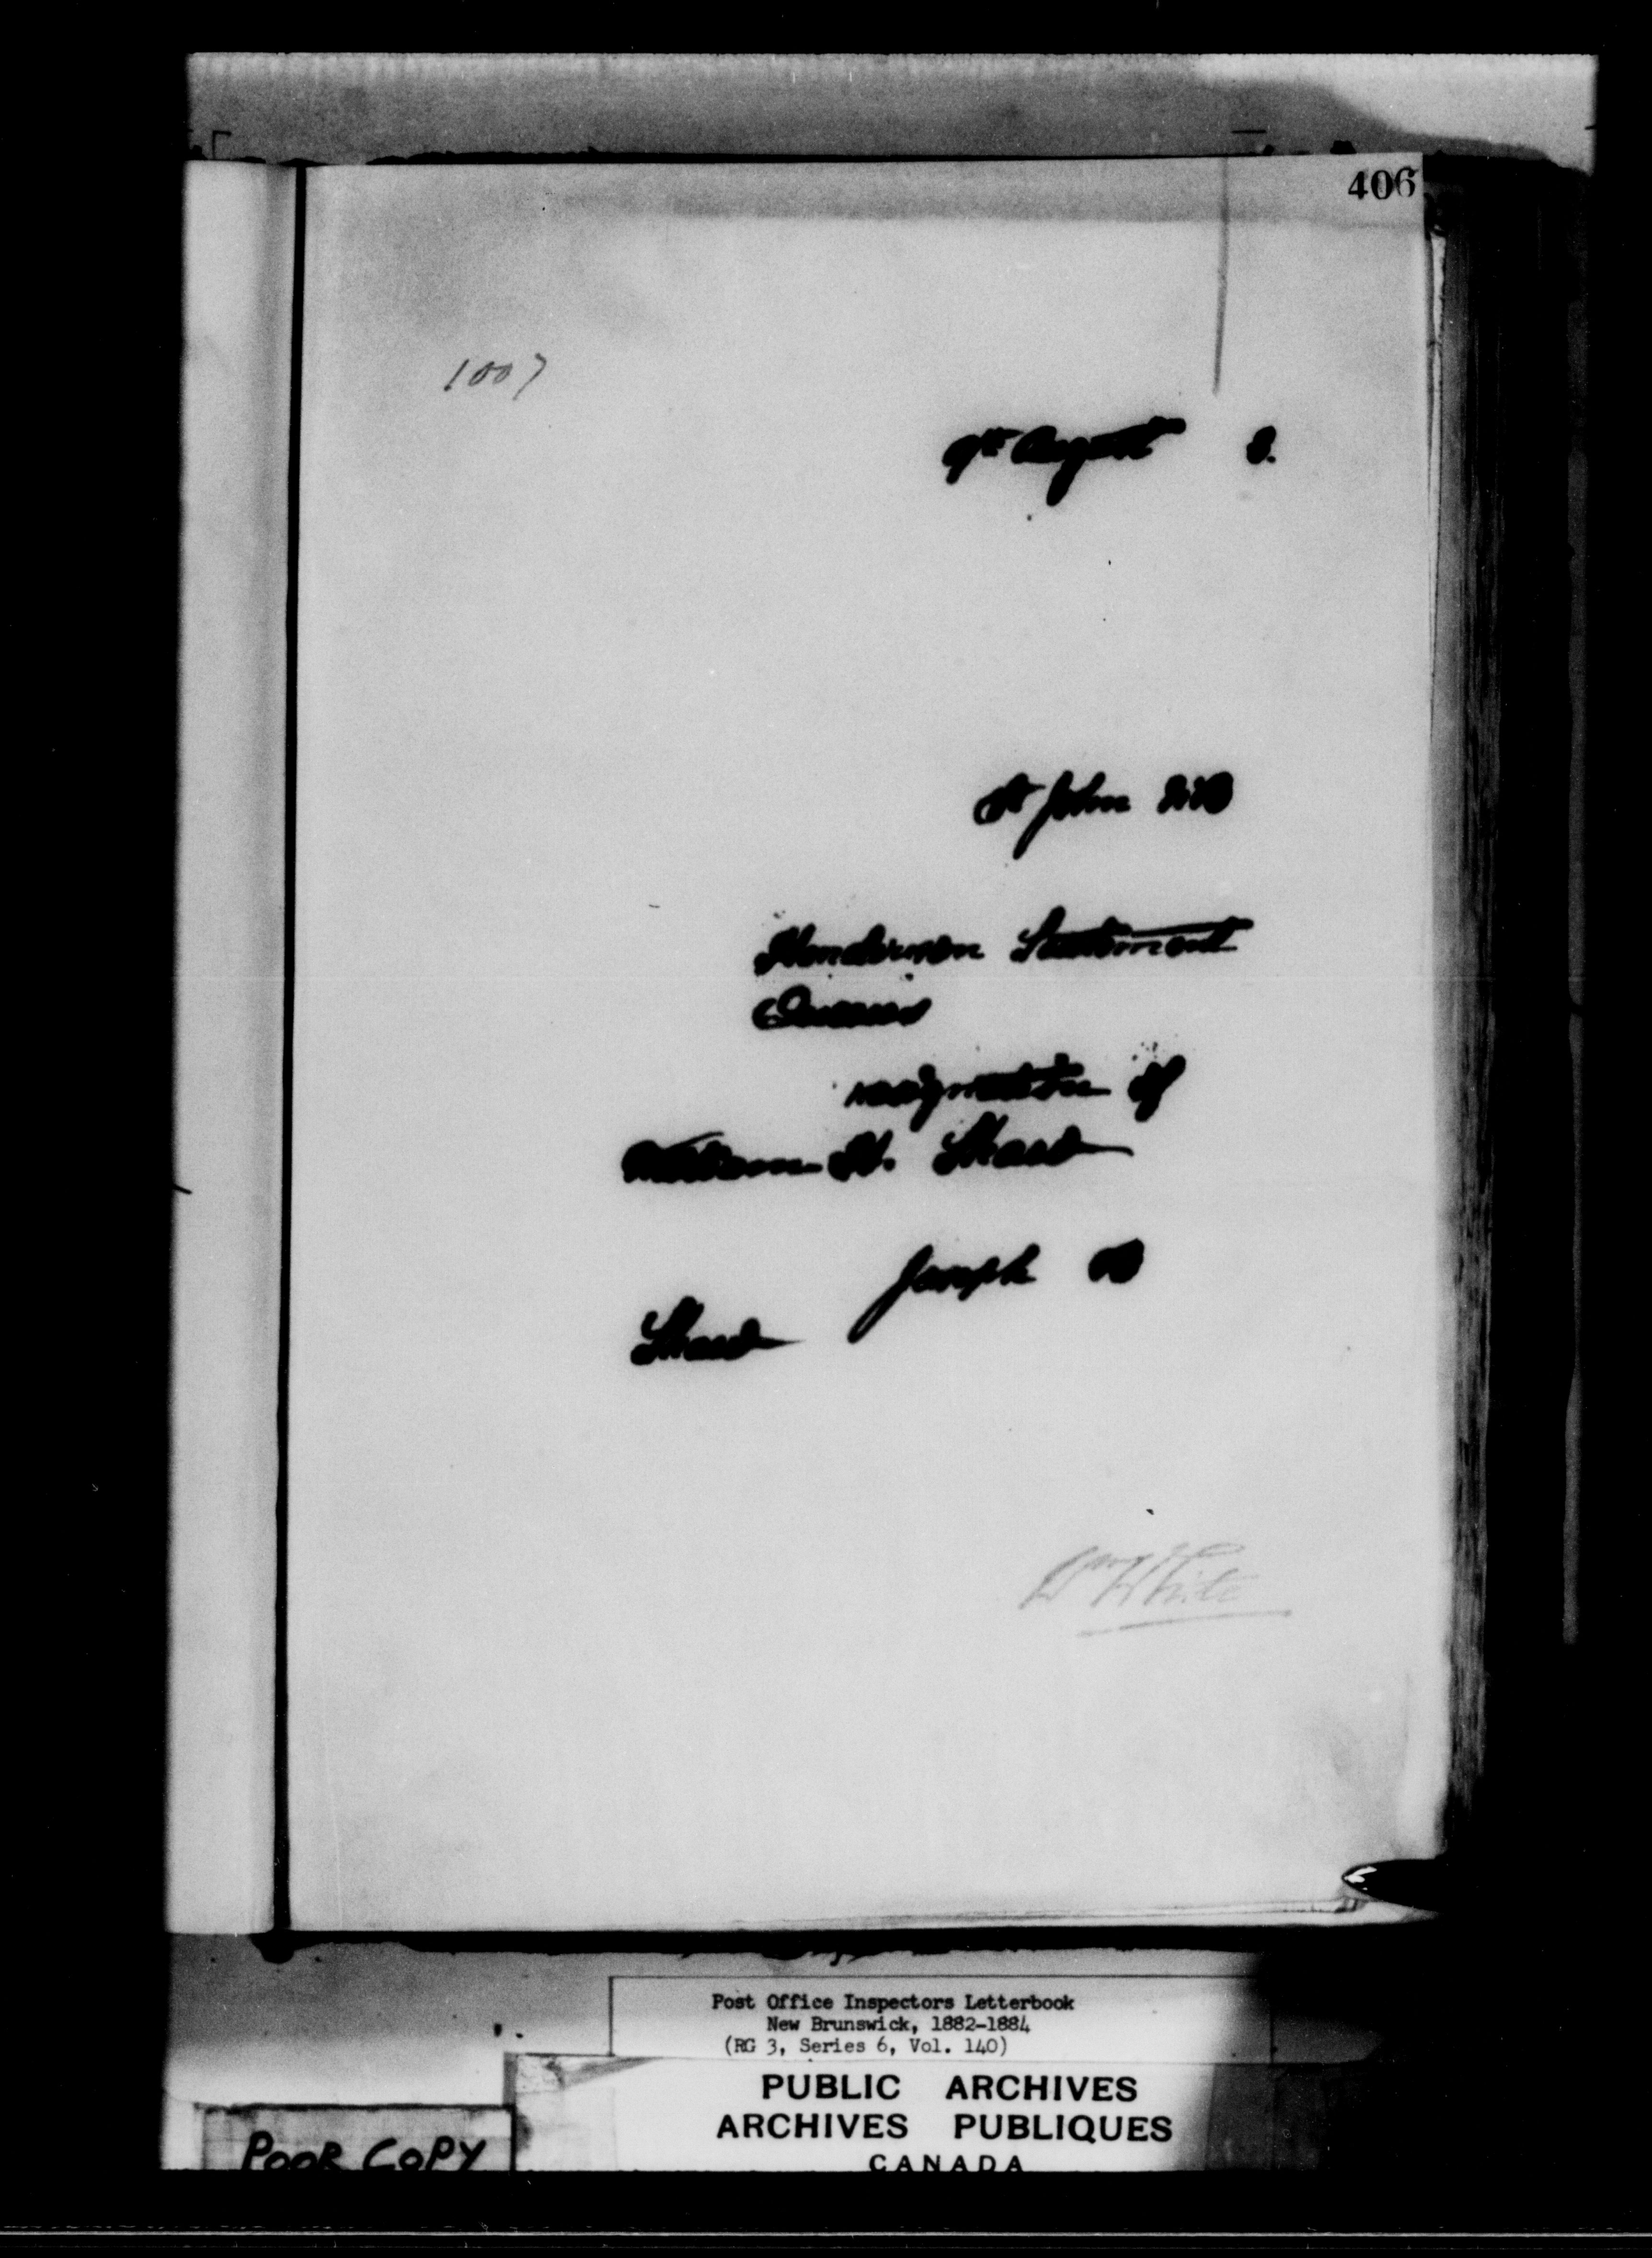 406
1007
9th August 3.
St John NB
Henderson Settlement
Queens
resignation of
William H. Shaw
Joseph B
Shaw
Wm White
Post Office Inspectors Letterbook
New Brunswick, 1882-1884
(RG 3, Series 6, Vol. 140)
PUBLIC ARCHIVES
ARCHIVES PUBLIQUES
CANADA
POOR COPY